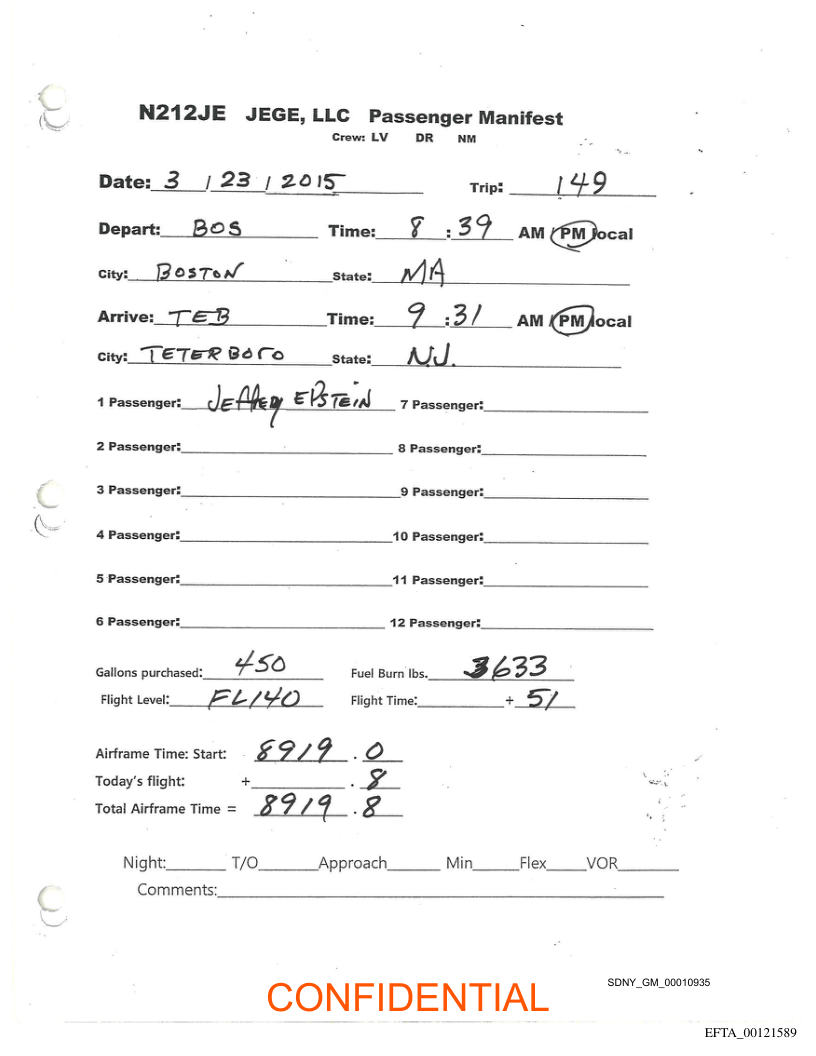 N212JE JEGE, LLC Passenger Manifest
Crew: LV DR NM
Date: 3 / 23 / 2015 Trip: 149
Depart: BOS Time: 8 : 39 AM / PM local
City: BOSTON State: MA
Arrive: TEB Time: 9 : 31 AM / PM local
City: TETERBORO State: N.J.
1 Passenger: JEFFREY EPSTEIN 7 Passenger:
2 Passenger: 8 Passenger:
3 Passenger: 9 Passenger:
4 Passenger: 10 Passenger:
5 Passenger: 11 Passenger:
6 Passenger: 12 Passenger:
Gallons purchased: 450 Fuel Burn lbs. 3633
Flight Level: FL140 Flight Time: + 51
Airframe Time: Start: 8919 . 0
Today's flight: + . 8
Total Airframe Time = 8919 . 8
Night: T/O Approach Min Flex VOR
Comments:
SDNY_GM_00010935
CONFIDENTIAL
EFTA_00121589